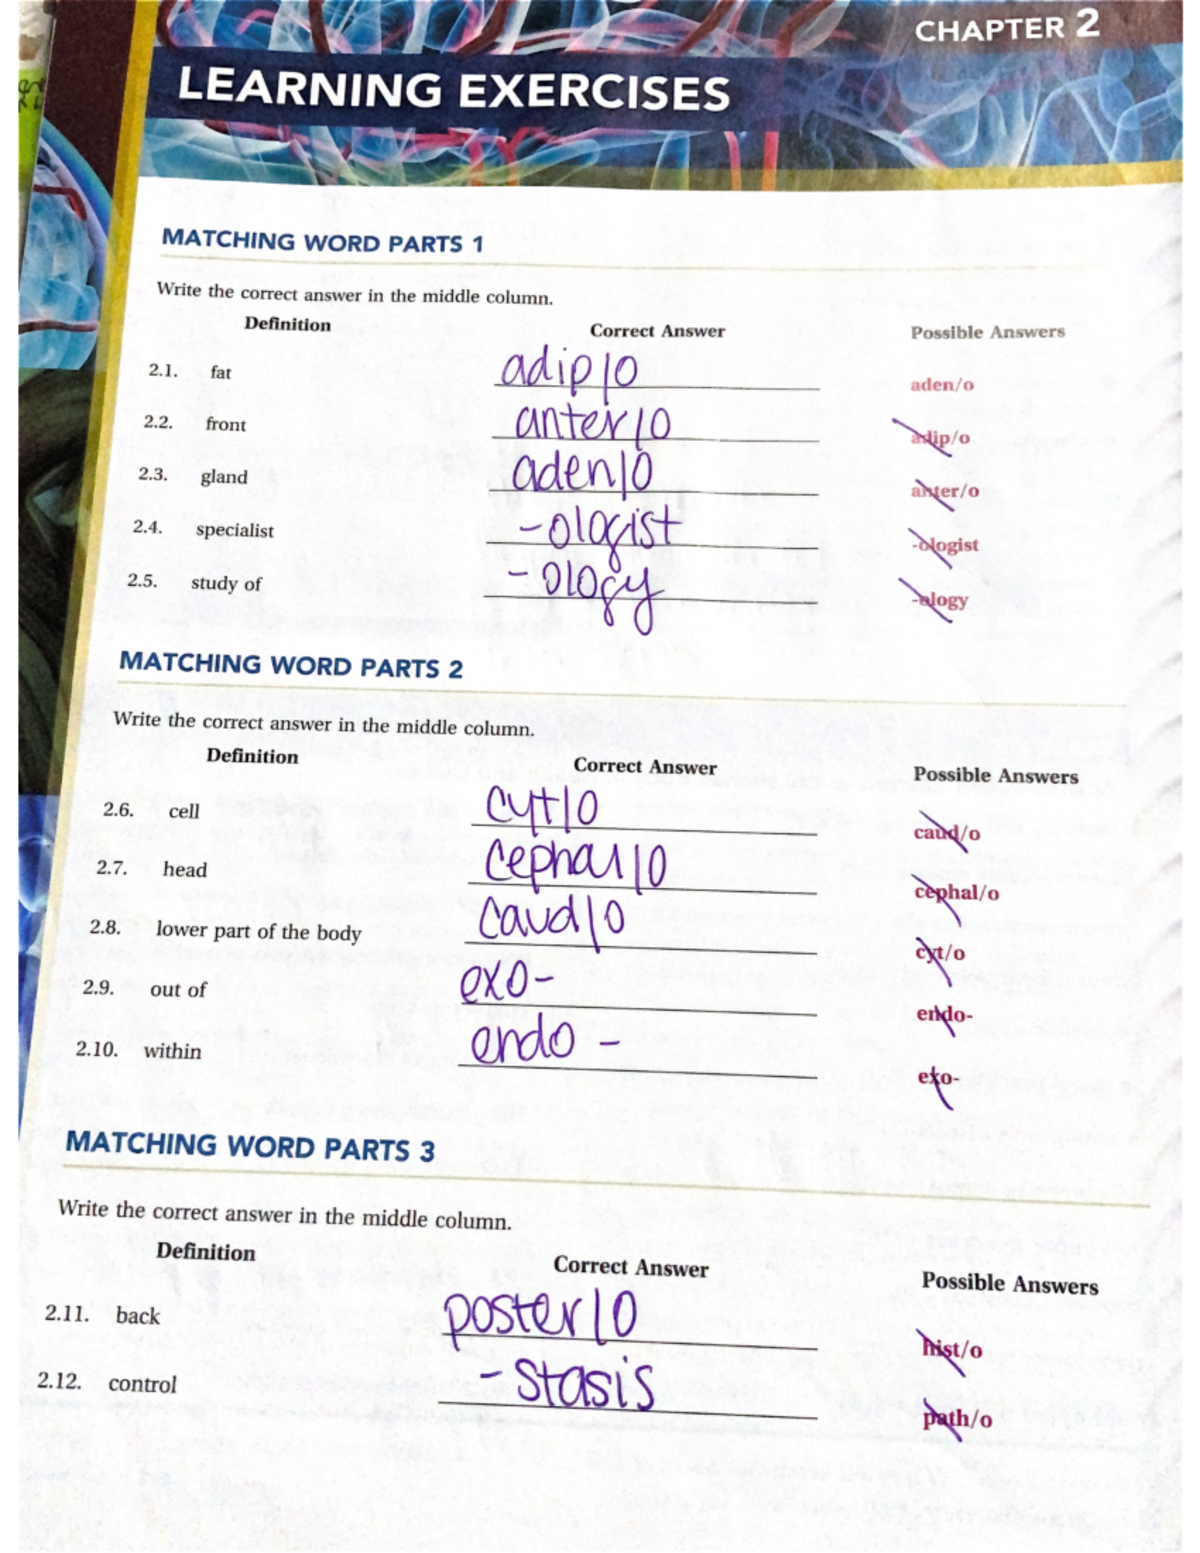 CHAPTER 2
LEARNING EXERCISES
MATCHING WORD PARTS 1
Write the correct answer in the middle column.
Definition Correct Answer Possible Answers
2.1. fat adip/o aden/o
2.2. front anter/o adip/o
2.3. gland aden/o anter/o
2.4. specialist -ologist -ologist
2.5. study of -ology -ology
MATCHING WORD PARTS 2
Write the correct answer in the middle column.
Definition Correct Answer Possible Answers
2.6. cell cyt/o caud/o
2.7. head cephal/o cephal/o
2.8. lower part of the body caud/o cyt/o
2.9. out of exo- endo-
2.10. within endo - exo-
MATCHING WORD PARTS 3
Write the correct answer in the middle column.
Definition Correct Answer Possible Answers
2.11. back poster/o hist/o
2.12. control -stasis path/o